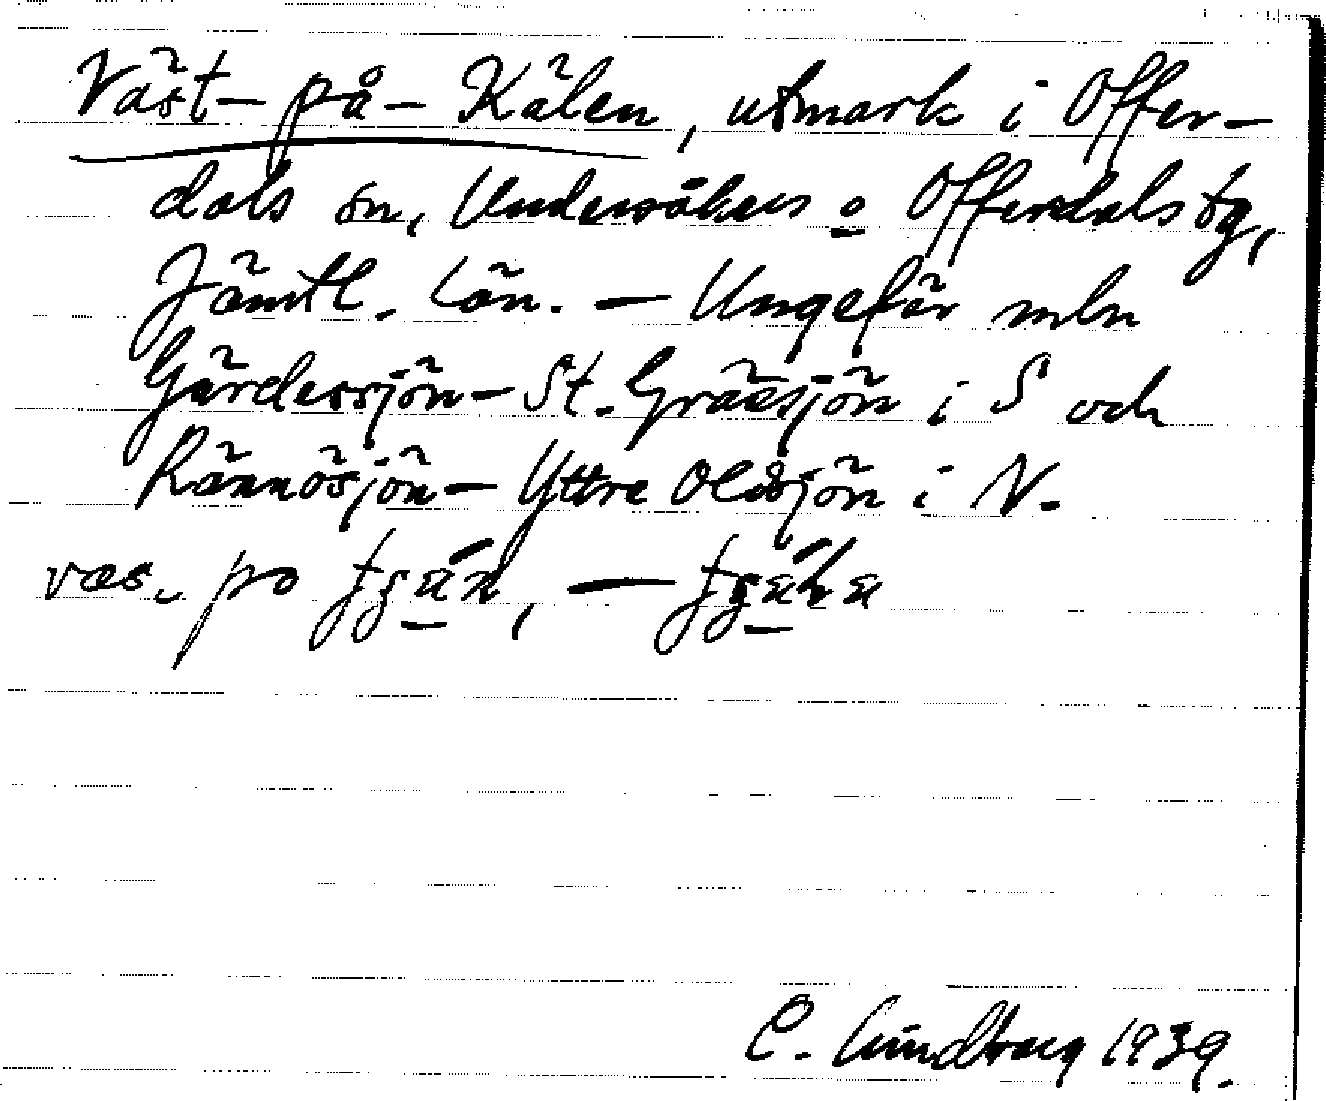 Väst-på-Kälen, utmark i Offer-
dals sn, Undersåkers o Offerdals tg,
Jämtl. län. – Ungefär mln
Gärdessjön – St. Grässjön i S och
Rännösjön – Yttre Oldsjön i N.
væs. po
C. Lundberg 1939.